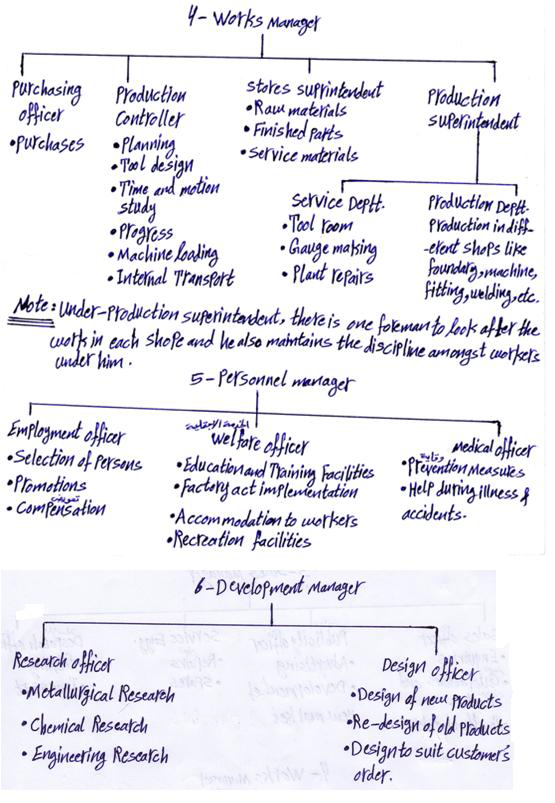 4- Works Manager
Purchasing
officer
• Purchases
Production
Controller
• Planning
• Tool design
• Time and motion
study
• Progress
• Machine loading
• Internal Transport
Stores suprintendent
• Raw materials
• Finished parts
• Service materials
Production
superintendent
Service Deptt.
• Tool room
• Gauge making
• Plant repairs
Production Deptt.
Production in diff-
erent shops like
foundary, machine,
fitting, welding, etc.
Note: Under-Production superintendent, there is one foreman to look after the
work in each shope and he also maintains the discipline amongst workers
under him.
5- Personnel manager
Employment officer
• Selection of Persons
• Promotions
تعويض
• Compensation
welfare officer
• Education and Training Facilities
• Factory act implementation
• Accommodation to workers
• Recreation facilities
medical officer
وقاية
• Prevention Measures
• Help during illness &
accidents.
6- Development Manager
Research officer
• Metallurgical Research
• Chemical Research
• Engineering Research
Design officer
• Design of new Products
• Re-design of old Products
• Design to suit customer's
order.